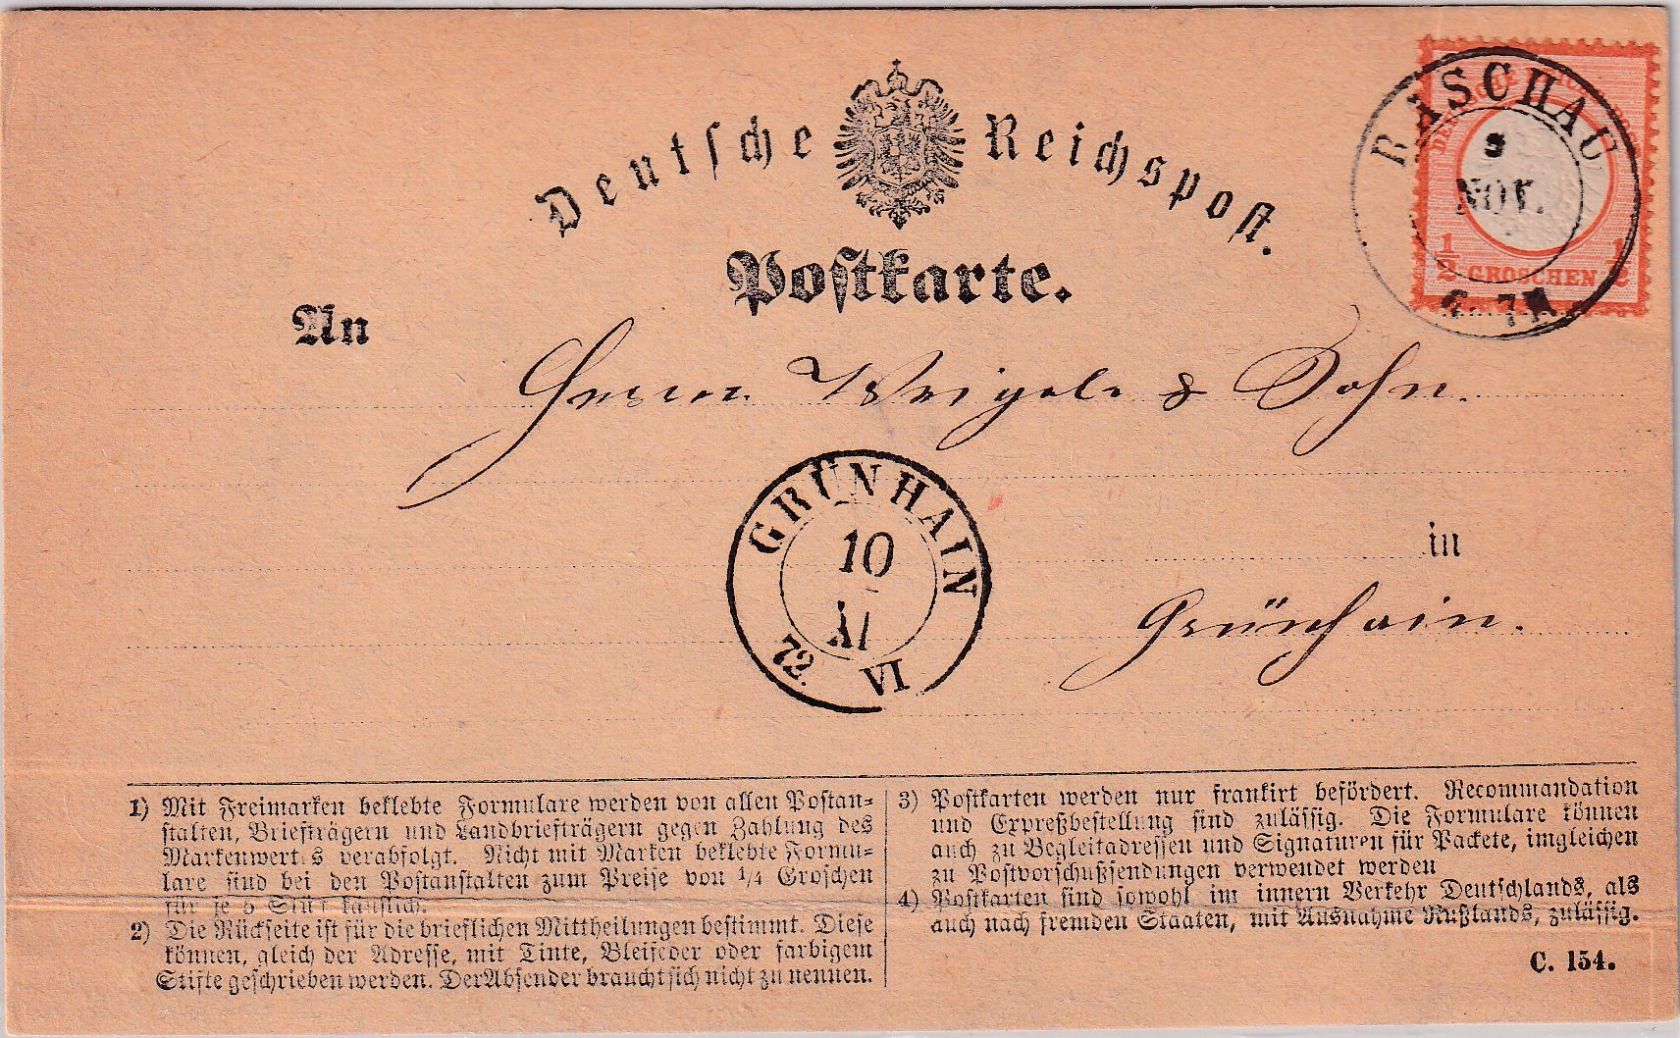 Deutsche Reichspost.
Postkarte.
RÄSCHAU
NOV.
6-7N
1/2 GROSCHEN 1/2
An
Herrn Weigel & Sohn.
GRÜNHAIN
10
XI
72. VI
in
Grünhain.
1) Mit Freimarken beklebte Formulare werden von allen Postan-
stalten, Briefträgern und Landbriefträgern gegen Zahlung des
Markenwertes verabfolgt. Nicht mit Marken beklebte Formu-
lare sind bei den Postanstalten zum Preise von 1/4 Groschen
für je 5 Stück käuflich.
2) Die Rückseite ist für die brieflichen Mittheilungen bestimmt. Diese
können, gleich der Adresse, mit Tinte, Bleifeder oder farbigem
Stifte geschrieben werden. Der Absender braucht sich nicht zu nennen.
3) Postkarten werden nur frankirt befördert. Recommandation
und Expreßbestellung sind zulässig. Die Formulare können
auch zu Begleitadressen und Signaturen für Packete, imgleichen
zu Postvorschußsendungen verwendet werden
4) Postkarten sind sowohl im innern Verkehr Deutschlands, als
auch nach fremden Staaten, mit Ausnahme Rußlands, zulässig.
C. 154.